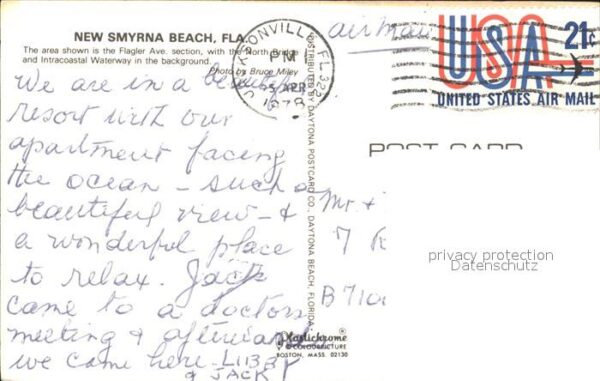 NEW SMYRNA BEACH, FLA.
The area shown is the Flagler Ave. section, with the North Bridge
and Intracoastal Waterway in the background.
Photo by Bruce Miley
We are in a beautiful
resort with our
apartment facing
the ocean - such a
beautiful view - &
a wonderful place
to relax. Jack
came to a doctors
meeting & afterward
we came here - LIBBY
& JACK
DISTRIBUTED BY DAYTONA POSTCARD CO., DAYTONA BEACH, FLORIDA
Plastichrome
® COLOURPICTURE
BOSTON, MASS. 02130
JACKSONVILLE, FL 322
PM
5 APR
1978
airmail
USA 21c
UNITED STATES AIR MAIL
POST CARD
Mr. &
7
B 710
privacy protection
Datenschutz